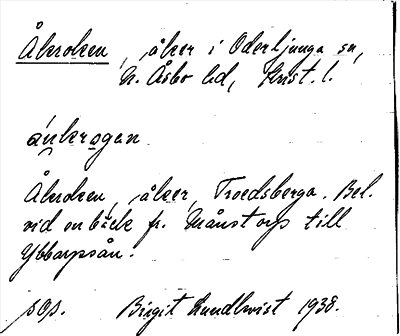 Åkroken, åker i Oderljunga sn,
N. Åsbo hd, Krist. l.
ånkrogan
Åkroken, åker, Troedsberga. Bel.
vid en bäck fr. Månstorp till
Ybbarpsån.
sgs. Birgit Lundkvist 1938.